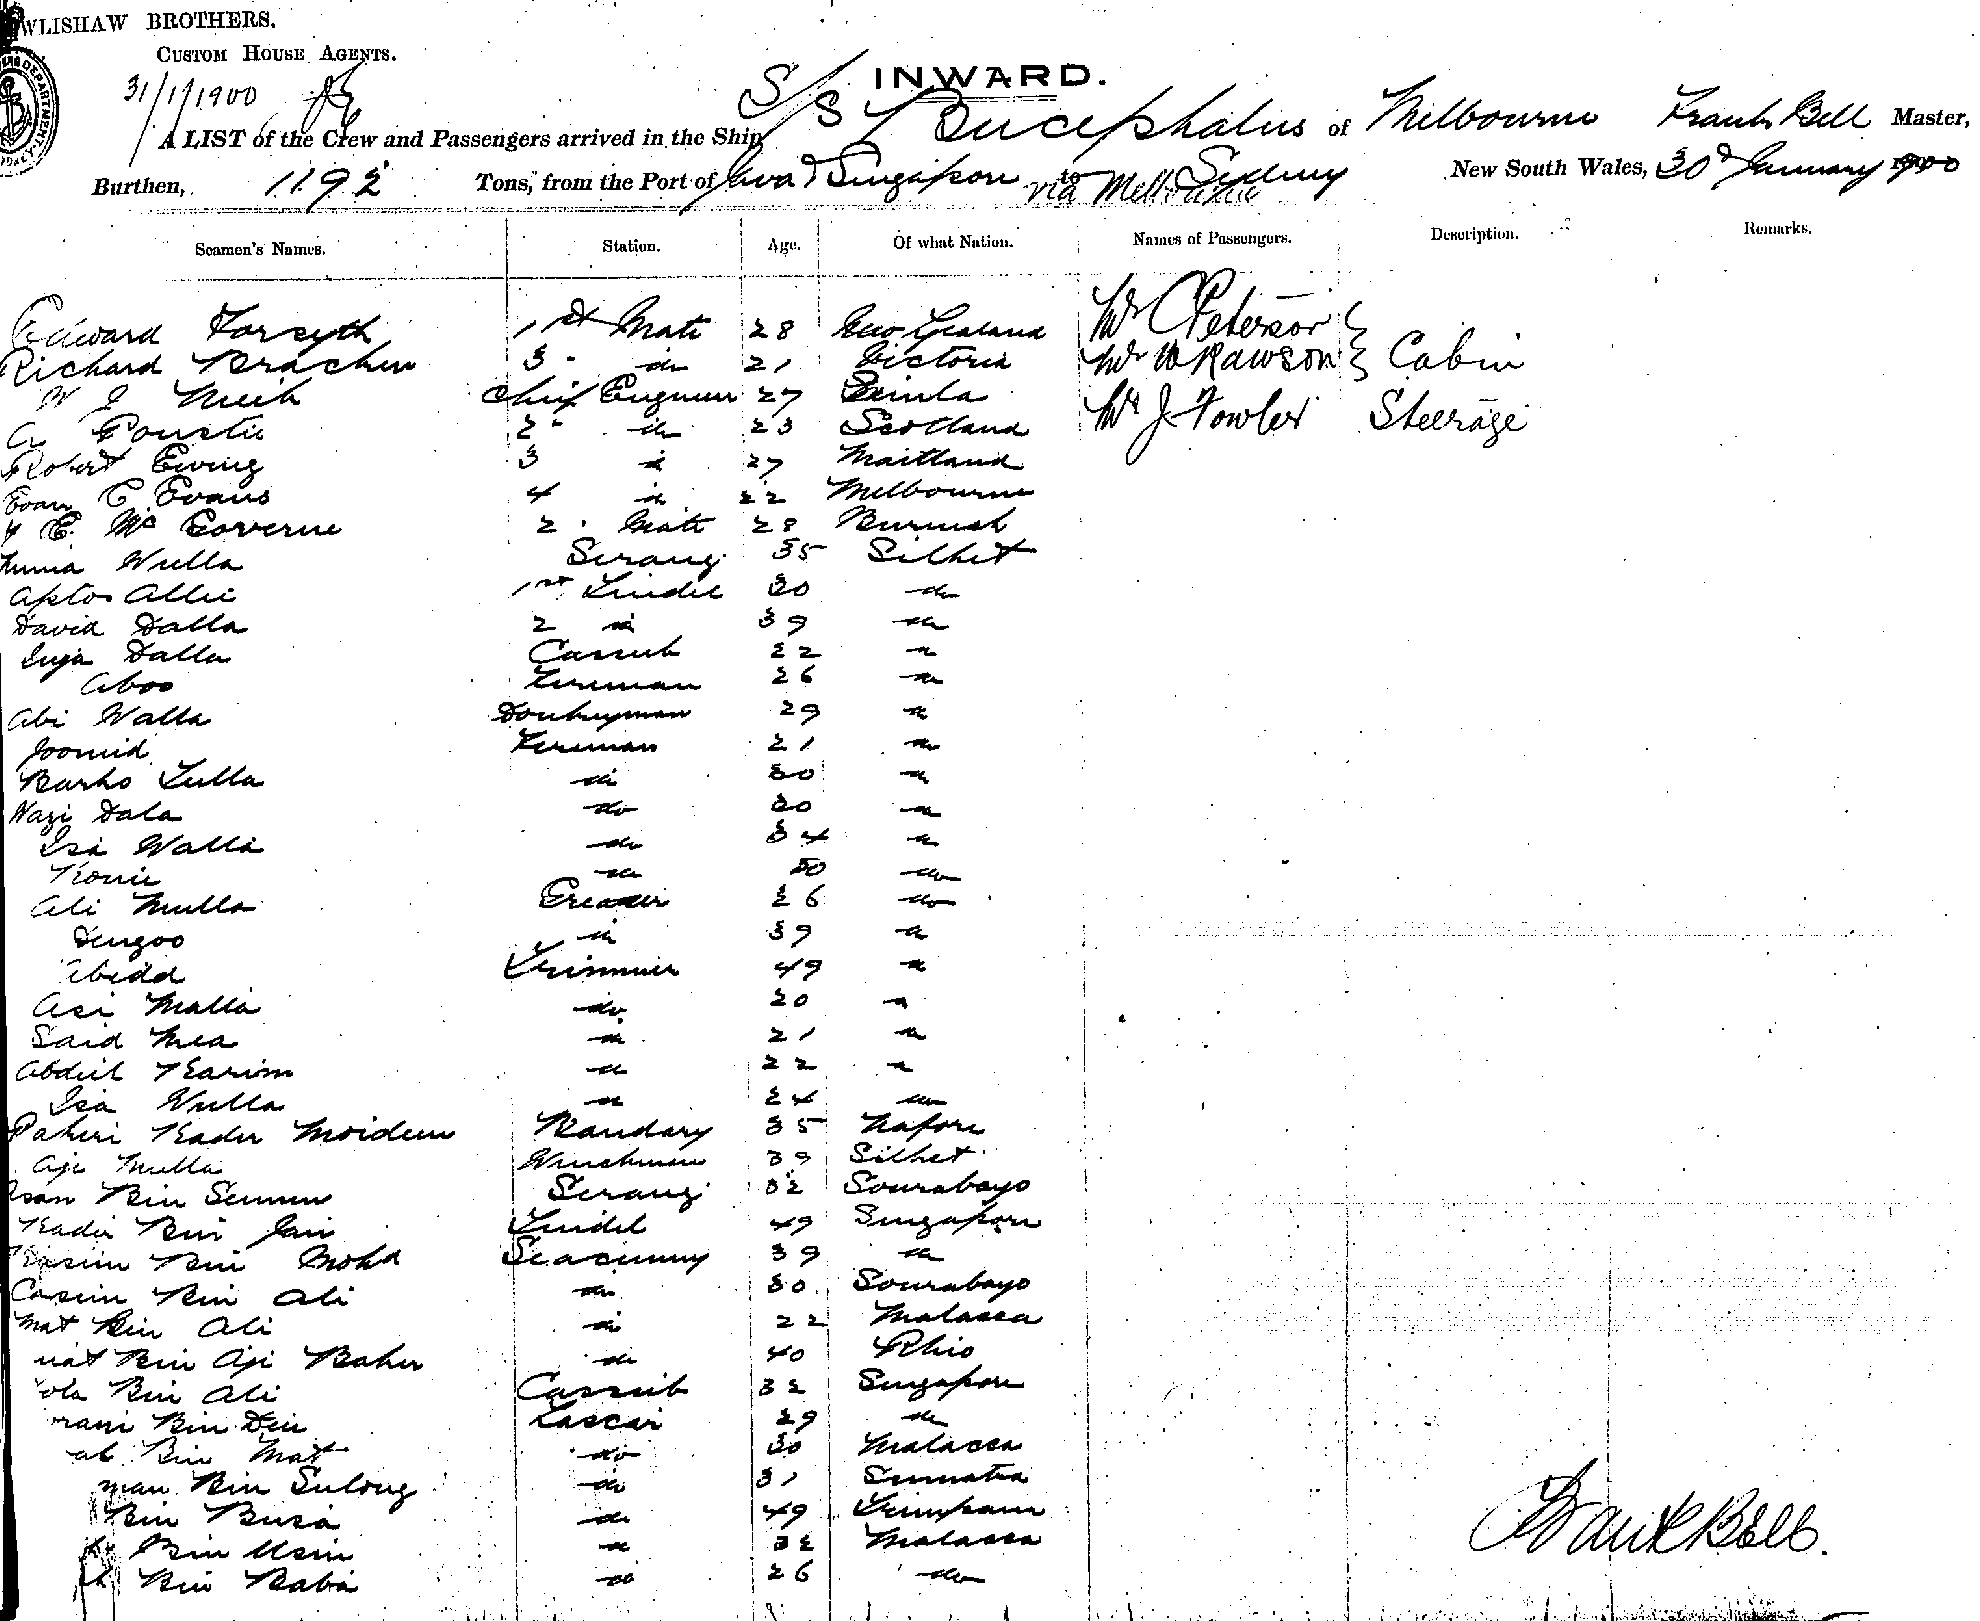 WLISHAW BROTHERS.
CUSTOM HOUSE AGENTS.
31/1/1900
INWARD.
A LIST of the Crew and Passengers arrived in the Ship S/S Bucephalus of Melbourne Frank Bell Master,
Burthen, 1192 Tons, from the Port of Java & Singapore via Melbourne to Sydney New South Wales, 30th January 1900
Seamen's Names. Station. Age. Of what Nation. Names of Passengers. Description. Remarks.
Edward Forsyth 1st Mate 28 New Zealand Mr C Peterson
Richard Bracken 3 do 21 Victoria Mr W Rawson Cabin
W J Chief Engineer 27
Mr J Fowler Steerage
2 do 23 Scotland
Robert Ewing 3 do 27 Maitland
Evan E Evans 4 do 22 Melbourne
E. Mc Governe 2 Mate 28 Burmah
Wulla Serang 35 Silhet
Aptor Allie 1st Tindel 30 do
David Dalla 2 do 39 do
Suja Dalla Cassub 22 do
Aboo Fireman 26 do
Abi Walla Donkeyman 29 do
Joomid Fireman 21 do
Barko Tulla do 30 do
Wazi Dala do 20 do
Isa Walla do 34 do
do 50 do
Ali Mulla Greaser 26 do
Dengoo do 39 do
Abedd Trimmer 49 do
Asi Malla do 20 do
Said Mea do 21 do
Abdul Karim do 22 do
Isa Wulla do 24 do
Pakeri Kader Moideen Bandary 35
Aji Mulla Winchman 39 Silhet
Bin Serang 32 Sourabayo
Kader Bin Jan Tindel 49 Singapore
Kasim Bin Mohd Seacunny 39 do
Casim Bin Ali do 30 Sourabayo
Mat Bin Ali do 22 Malacca
Bin Aji Baker do 40 Rhio
Bin Ali Cassub 32 Singapore
Bin Din Lascar 29 do
Bin Mat do 30 Malacca
man Bin Sulong do 31 Sumatra
Bin Busa do 49
Bin Usin do 32 Malacca
Bin Baba do 26 do
Frank Bell.